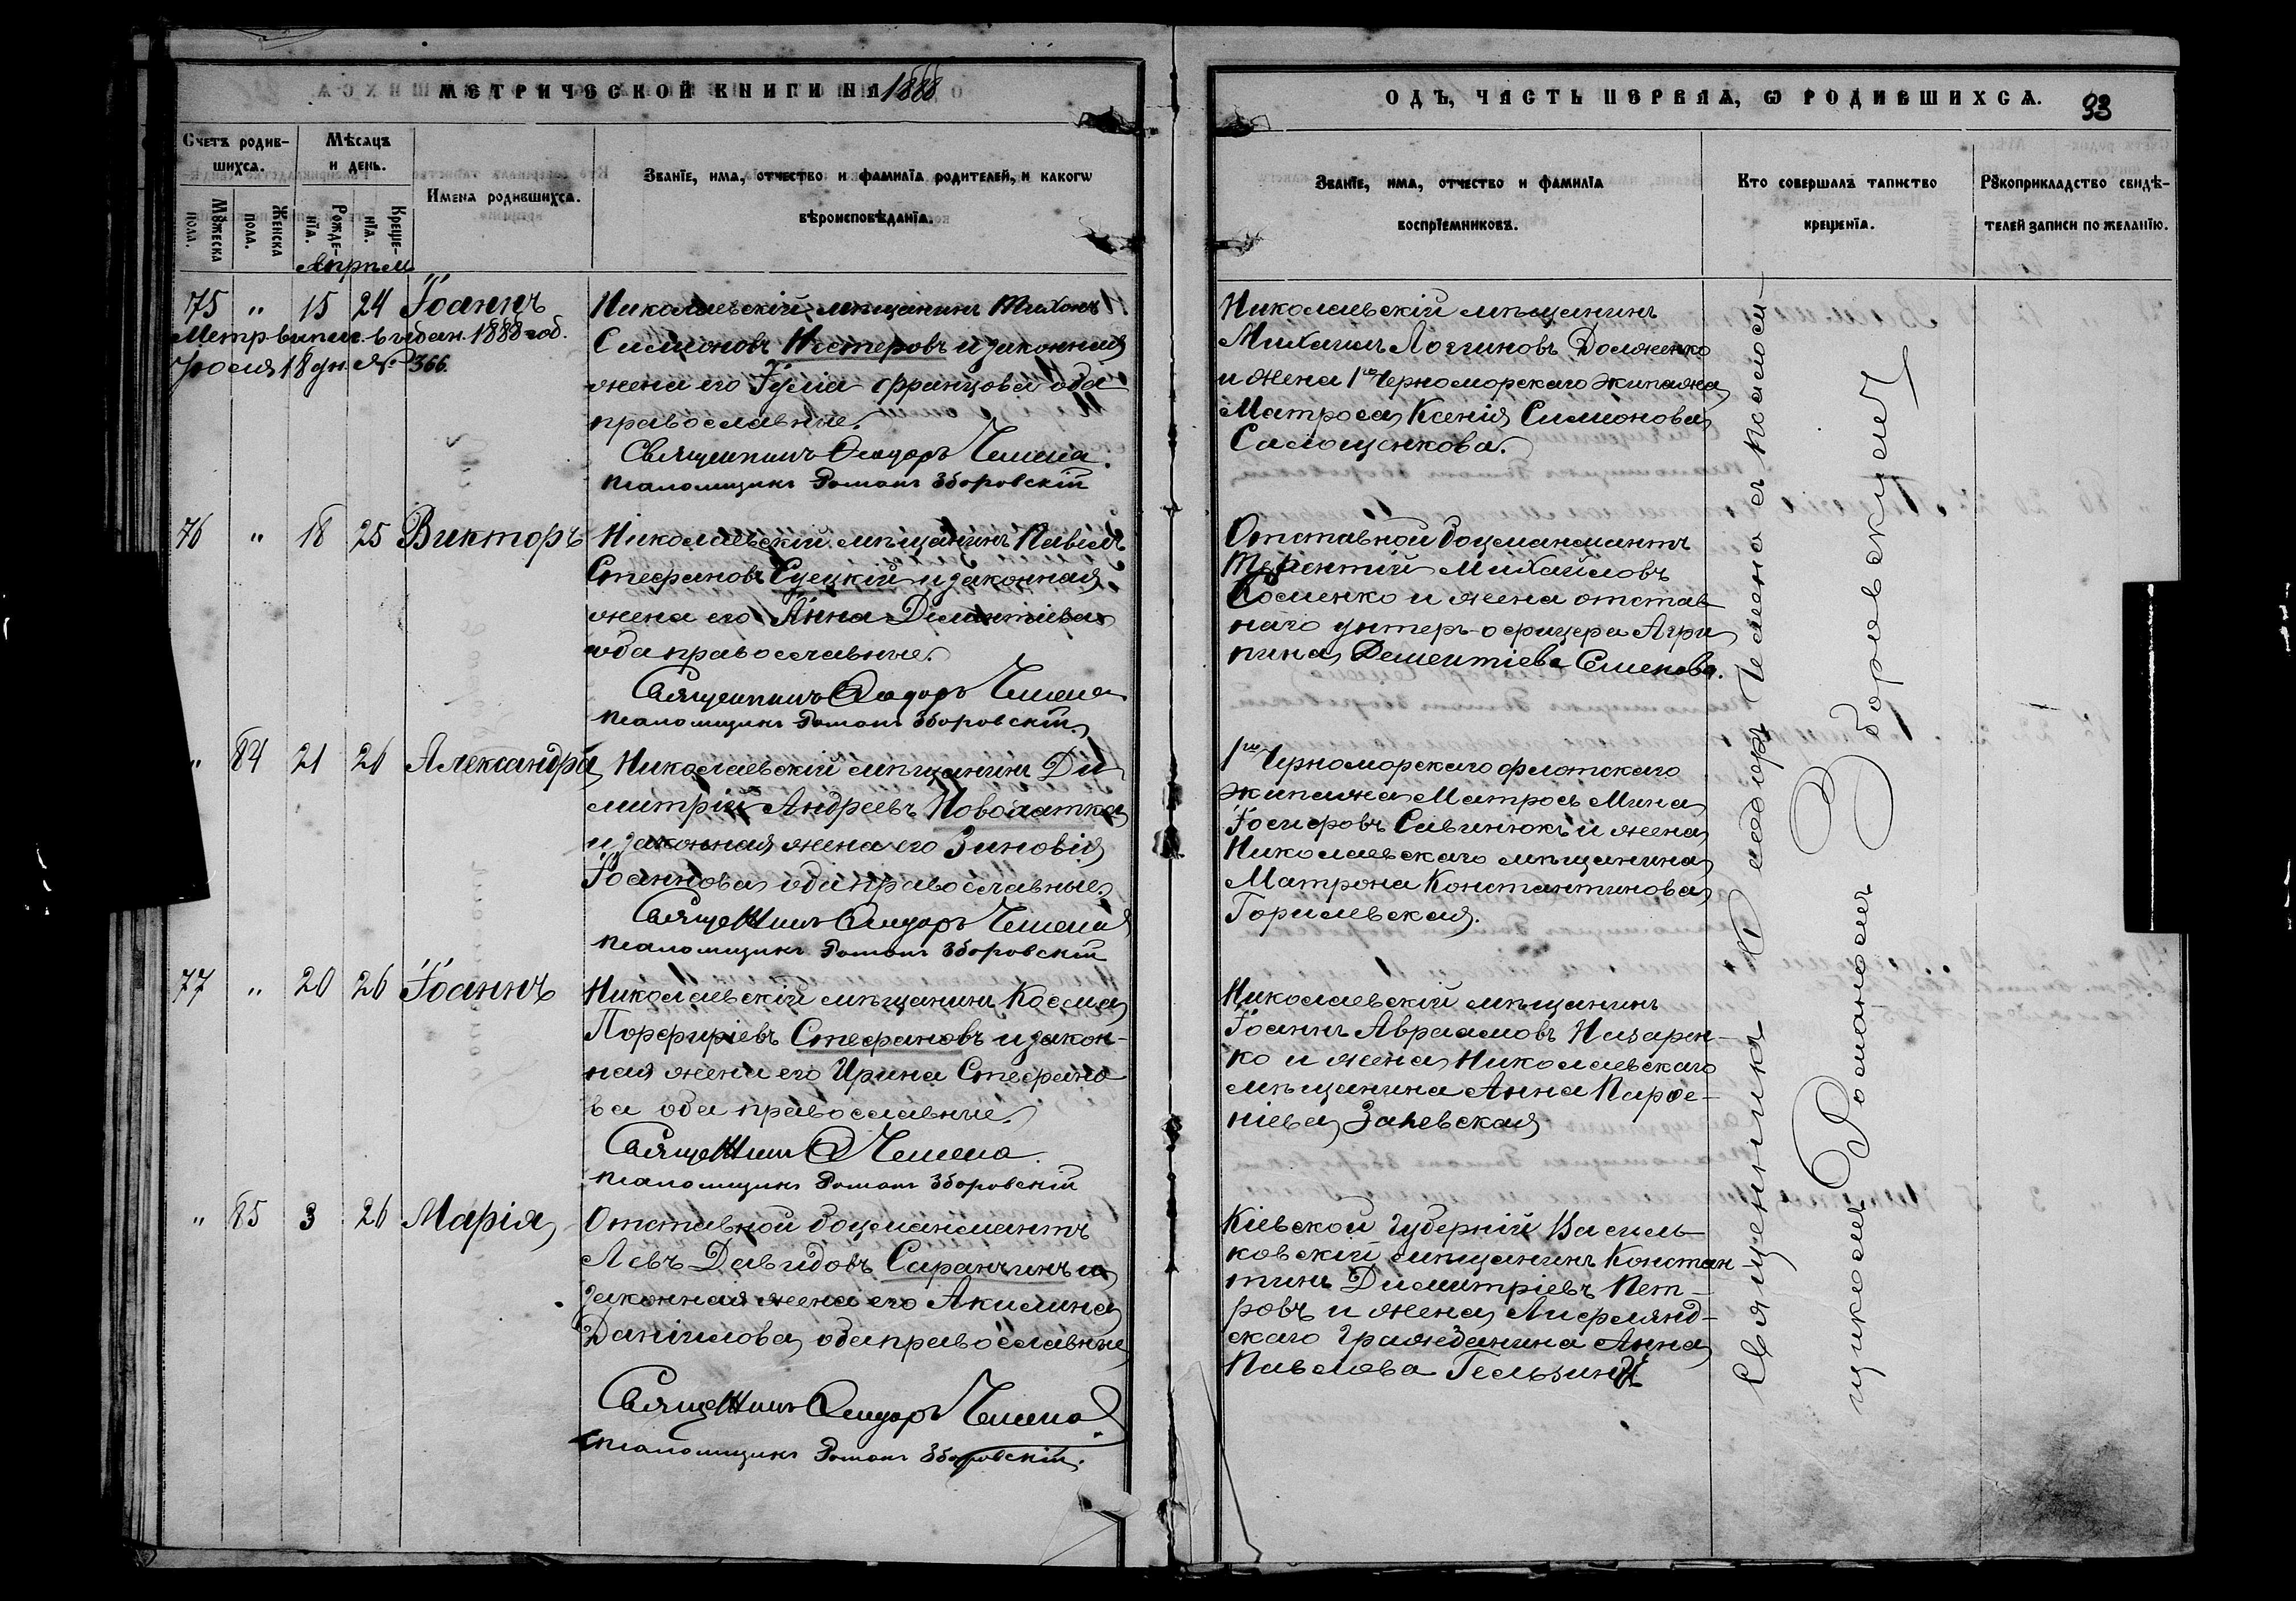 МЕТРИЧЕСКОЙ КНИГИ НА 1888
ОДЪ, ЧАСТЬ ПЕРВАЯ, Ѡ РОДИВШИХСѦ.
93
Счетъ родив-
шихсѧ.
Мѣсѧцъ
и день.
Имена родившихсѧ.
Званїе, имѧ, отчество и фамилїѧ родителей, и какогѡ
вѣроисповѣданїѧ.
Мꙋжеска
пола.
Женска
пола.
Рожде-
нїѧ.
Креще-
нїѧ.
Званїе, имѧ, отчество и фамилїѧ
воспрїемниковъ.
Кто совершалъ таинство
крещенїѧ.
Рꙋкоприкладство свидѣ-
телей записи по желанїю.
Апрѣль
75 " 15 24 Іоаннъ
Метр. выпис. выдан. 1888 год.
Іюля 18 дн. № 366.
Николаевскій мѣщанинъ Тихонъ
Симоновъ Нестеровъ и законная
жена его Іулія Францова оба
православные.
Священникъ Ѳеодоръ Чемена.
Псаломщикъ Романъ Зборовскій
Николаевскій мѣщанинъ
Михаилъ Логиновъ Долженко
и жена 1го Черноморскаго экипажа
Матроса Ксенія Симонова
Самощенкова.
76 " 18 25 Викторъ
Николаевскій мѣщанинъ Павелъ
Стефановъ Суецкій и законная
жена его Анна Дементіева
оба православные.
Священникъ Ѳеодоръ Чемена
Псаломщикъ Романъ Зборовскій.
Отставной боцманматъ
Терентій Михайловъ
Коменко и жена отстав
наго унтеръ-офицера Агри
пина Дементіева Семенова.
" 84 21 26 Александра
Николаевскій мѣщанинъ Ди
митрій Андреевъ Новохатка
и законная жена его Зиновія
Іоаннова оба православные.
Священникъ Ѳеодоръ Чемена
Псаломщикъ Романъ Зборовскій
1го Черноморскаго флотскаго
экипажа Матросъ Мина
Іосифовъ Савинюкъ и жена
Николаевскаго мѣщанина
Матрона Константинова
Горилевская.
77 " 20 26 Іоаннъ
Николаевскій мѣщанинъ Косма
Порфиріевъ Стефановъ и закон-
ная жена его Ирина Стефано
ва оба православные.
Священникъ Ѳ Чемена.
Псаломщикъ Романъ Зборовскій
Николаевскій мѣщанинъ
Іоаннъ Авраамовъ Назарен-
ко и жена Николаевскаго
мѣщанина Анна Парѳе-
ніева Заневская
" 85 3 26 Марія
Отставной боцманматъ
Левъ Давидовъ Саранчинъ и
законная жена его Акилина
Даніилова оба православные
Священникъ Ѳеодоръ Чемена.
Псаломщикъ Романъ Зборовскій.
Кіевской губерніи Василь-
ковскій мѣщанинъ Констан
тинъ Димитріевъ Пет-
ровъ и жена Лифлянд-
скаго гражданина Анна
Павлова
Священникъ Ѳеодоръ Чемена съ псалом-
щикомъ Романомъ Зборовскимъ